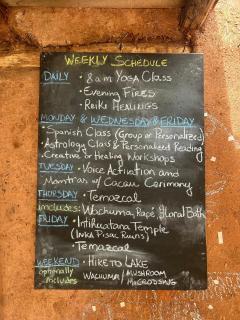 WEEKLY SCHEDULE
DAILY • 8am YOGA CLASS
• EVENING FIRES
• REIKI HEALINGS
MONDAY & WEDNESDAY & FRIDAY
• Spanish Class (Group or Personalized)
• Astrology Class & Personalized Reading
• Creative or Healing Workshops
TUESDAY • VOICE ACTIVATION and
Mantras w/ Cacau Ceremony
THURSDAY • Temozcal
includes: WACHUMA, Rapé, floral Bath
FRIDAY • Intihuatana Temple
(INKA PISAC RUINS)
• Temazcal
WEEKEND • HIKE TO LAKE
optionally WACHUMA/MUSHROOM
includes MICRODOSING